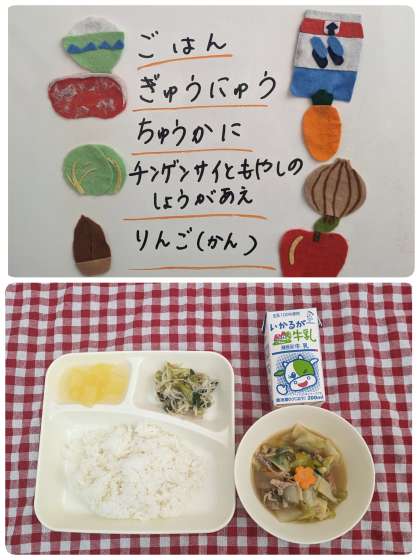 ごはん
ぎゅうにゅう
ちゅうかに
チンゲンサイともやしの
しょうがあえ
りんご(かん)
いかるが
牛乳
200ml